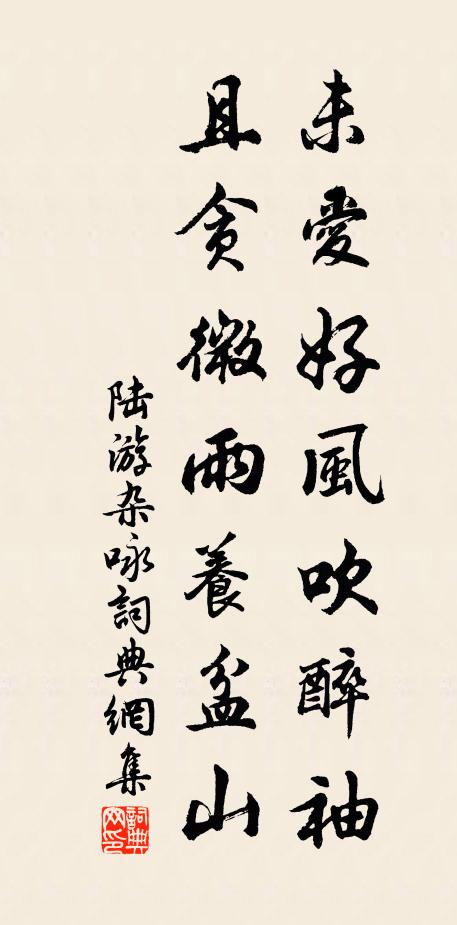 未愛好風吹醉袖
且貪微雨養盆山
陆游杂咏詞典網集
詞典網印